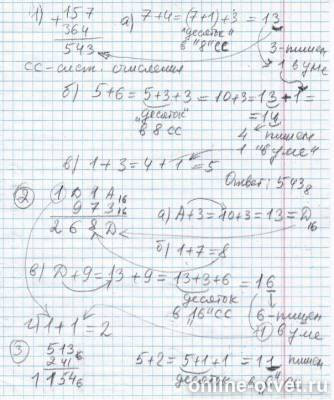 1) + 157
364
543
а) 7+4=(7+1)+3=13
"десяток"
в "8" СС
3-пишем
1 в уме
СС-сист. счисления
б) 5+6=5+3+3=10+3=13+1=
=14
"десяток"
в 8 СС
4 пишем
1 "в уме"
в) 1+3=4+1=5
Ответ: 543₈
2) 1D1A₁₆
973₁₆
268D
а) A+3=10+3=13=D₁₆
б) 1+7=8
в) D+9=13+9=13+3+6=16
десяток
в "16" СС
6-пишем
1 в уме
г) 1+1=2
3) 513₆
241₆
1154₆
5+2=5+1+1=11 пишем
десяток в "6" СС
online-otvet.ru